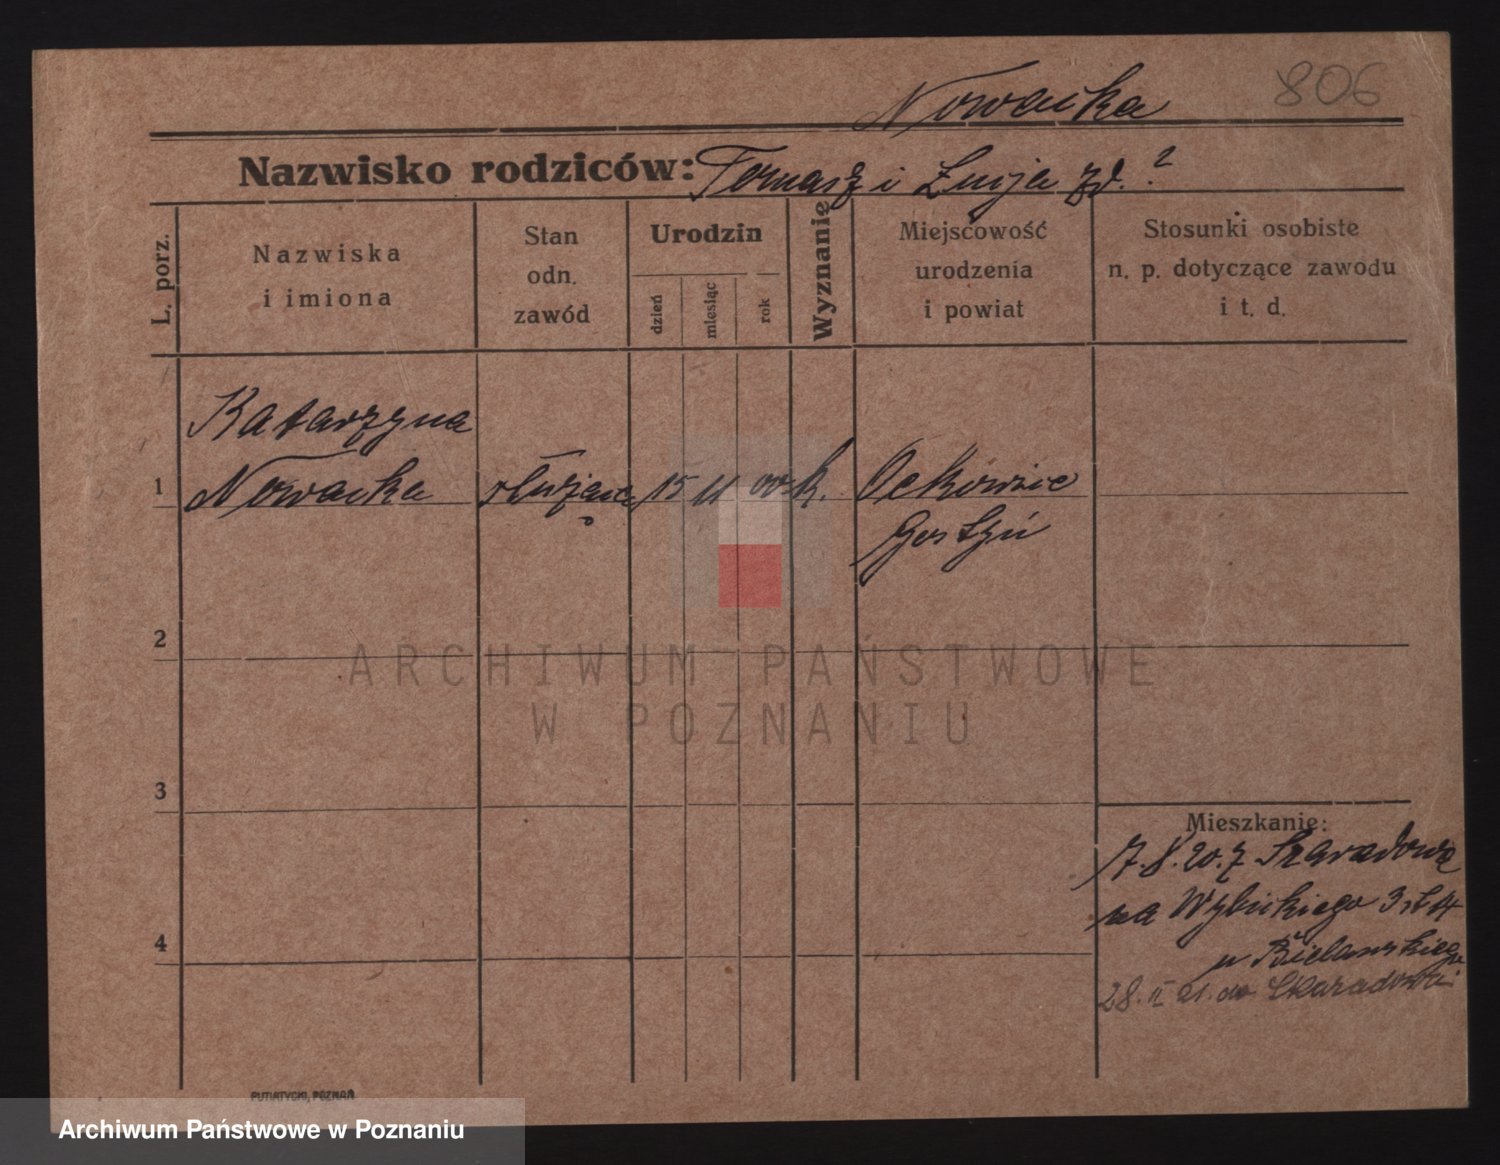 Nowacka 806
Nazwisko rodziców: Tomasz i Łucja zd. ?
L. porz.
Nazwiska
i imiona
Stan
odn.
zawód
Urodzin
dzień
miesiąc
rok
Wyznanie
Miejscowość
urodzenia
i powiat
Stosunki osobiste
n. p. dotyczące zawodu
i t. d.
Katarzyna
1 Nowacka służąca 15 11 00 k.
Gostyń
2
ARCHIWUM PAŃSTWOWE
W POZNANIU
3
Mieszkanie:
17.8.20. z
na Wybickiego 3
u
4
28. II 21. do
PUTIATYCKI, POZNAŃ
Archiwum Państwowe w Poznaniu